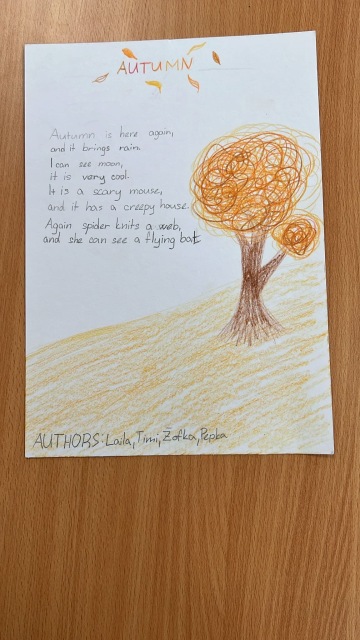 AUTUMN
Autumn is here again,
and it brings rain.
I can see moon,
it is very cool.
It is a scary mouse,
and it has a creepy house.
Again spider knits a web,
and she can see a flying bat.
AUTHORS: Laila, Timi, Žofka, Pepka